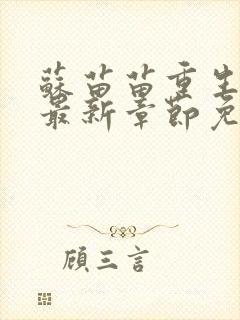 蘇苗苗重生
最新章節免
顧三言